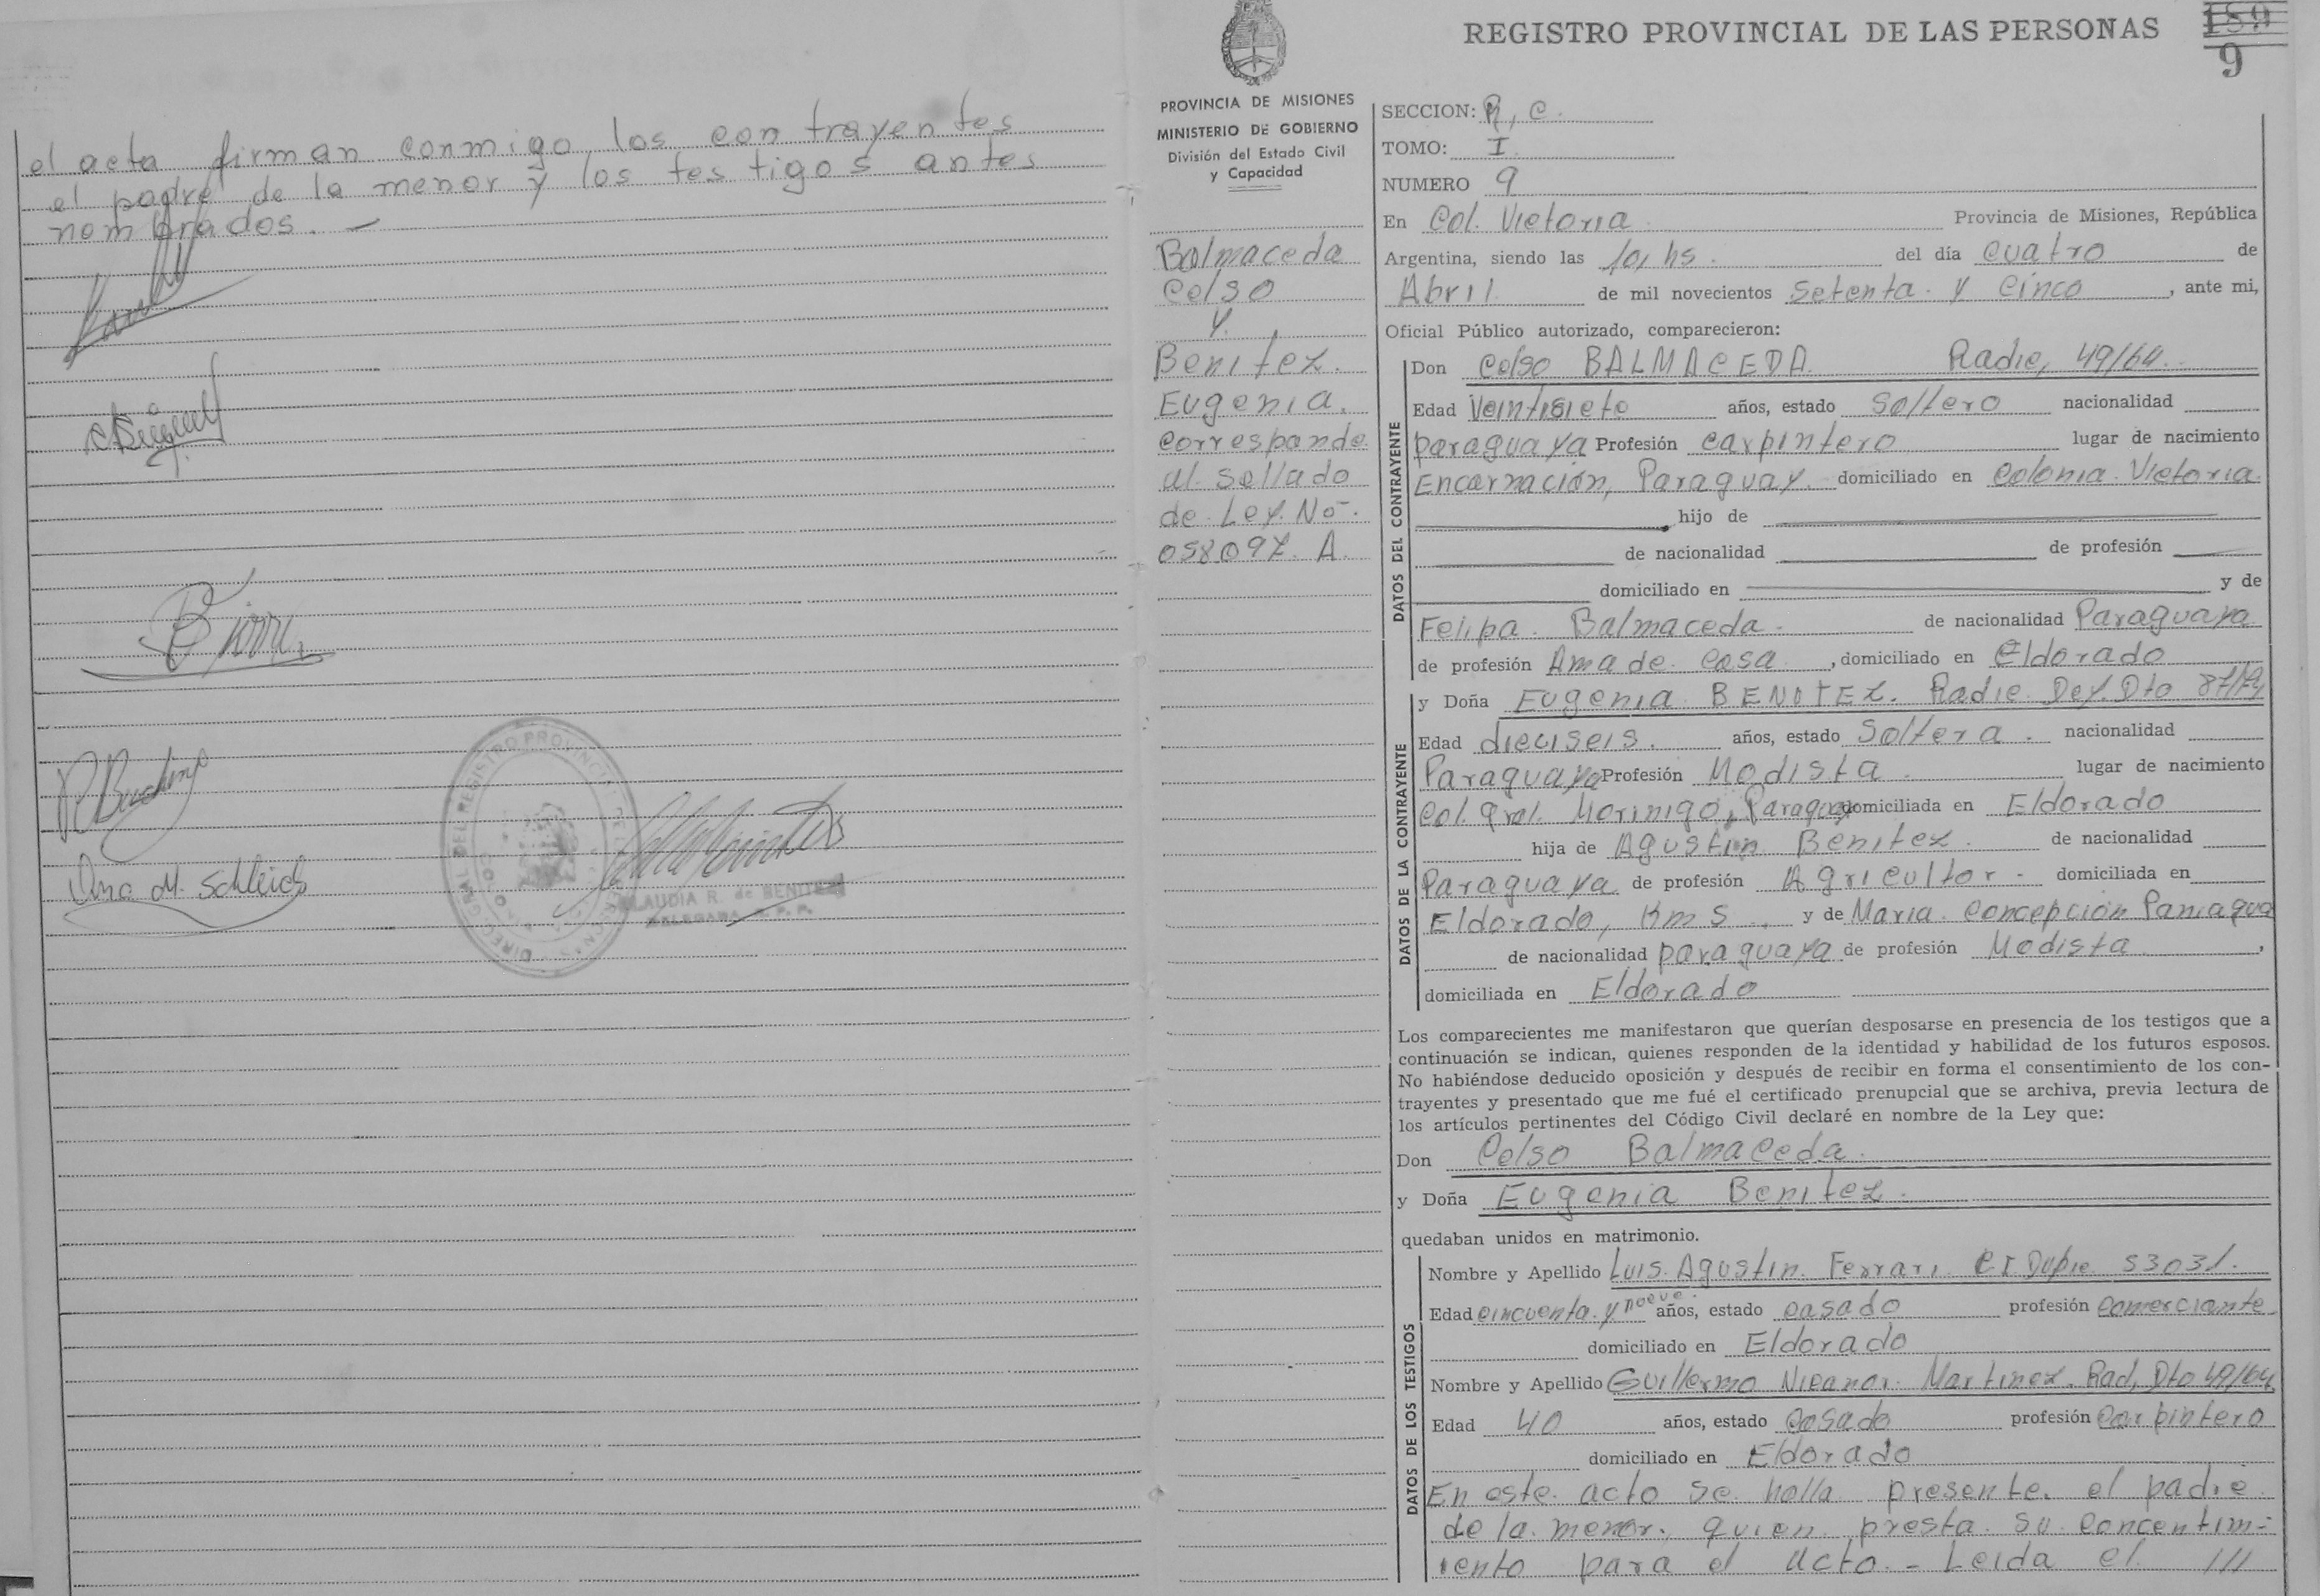 el acta firman conmigo los contrayentes
el padre de la menor y los testigos antes
nombrados. —
Ana M. Schleich
CLAUDIA R. de BENITEZ
DELEGADA R. P. P.
REGISTRO PROVINCIAL DE LAS PERSONAS
9
PROVINCIA DE MISIONES
MINISTERIO DE GOBIERNO
División del Estado Civil
y Capacidad
Balmaceda
Celso
y.
Benitez.
Eugenia.
corresponde
al sellado
de Ley. No-.
A.
SECCION: R, C.
TOMO: I.
NUMERO 9
En Col. Victoria Provincia de Misiones, República
Argentina, siendo las 10, hs. del día cuatro de
Abril de mil novecientos setenta. y cinco, ante mi,
Oficial Público autorizado, comparecieron:
DATOS DEL CONTRAYENTE
Don Celso BALMACEDA Radic, 49/64.
Edad Veintisiete años, estado Soltero nacionalidad
paraguaya Profesión carpintero lugar de nacimiento
Encarnación, Paraguay. domiciliado en Colonia. Victoria.
hijo de
de nacionalidad de profesión
domiciliado en y de
Felipa. Balmaceda. de nacionalidad Paraguaya
de profesión Ama de Casa, domiciliado en Eldorado
DATOS DE LA CONTRAYENTE
y Doña Eugenia BENITEZ. Radic Dto
Edad dieciseis. años, estado Soltera. nacionalidad
Paraguaya Profesión Modista. lugar de nacimiento
Col. Gral. Morinigo, Paraguay domiciliada en Eldorado
hija de Agustin Benitez. de nacionalidad
Paraguaya de profesión Agricultor - domiciliada en
Eldorado, Km 5, y de Maria. Concepción Paniagua
de nacionalidad paraguaya de profesión Modista,
domiciliada en Eldorado
Los comparecientes me manifestaron que querían desposarse en presencia de los testigos que a
continuación se indican, quienes responden de la identidad y habilidad de los futuros esposos.
No habiéndose deducido oposición y después de recibir en forma el consentimiento de los con-
trayentes y presentado que me fué el certificado prenupcial que se archiva, previa lectura de
los artículos pertinentes del Código Civil declaré en nombre de la Ley que:
Don Celso Balmaceda.
y Doña Eugenia Benitez.
quedaban unidos en matrimonio.
DATOS DE LOS TESTIGOS
Nombre y Apellido Luis. Agustin. Ferrari CI 53031.
Edad cincuenta. y nueve. años, estado casado profesión comerciante
domiciliado en Eldorado
Nombre y Apellido Guillermo Nicanor. Martinez. Rad, Dto 49/64
Edad 40 años, estado casado profesión carpintero
domiciliado en Eldorado
En este. acto se halla presente. el padre
de la. menor., quien presta. su concentim-
iento para el acto. - Leida el ///